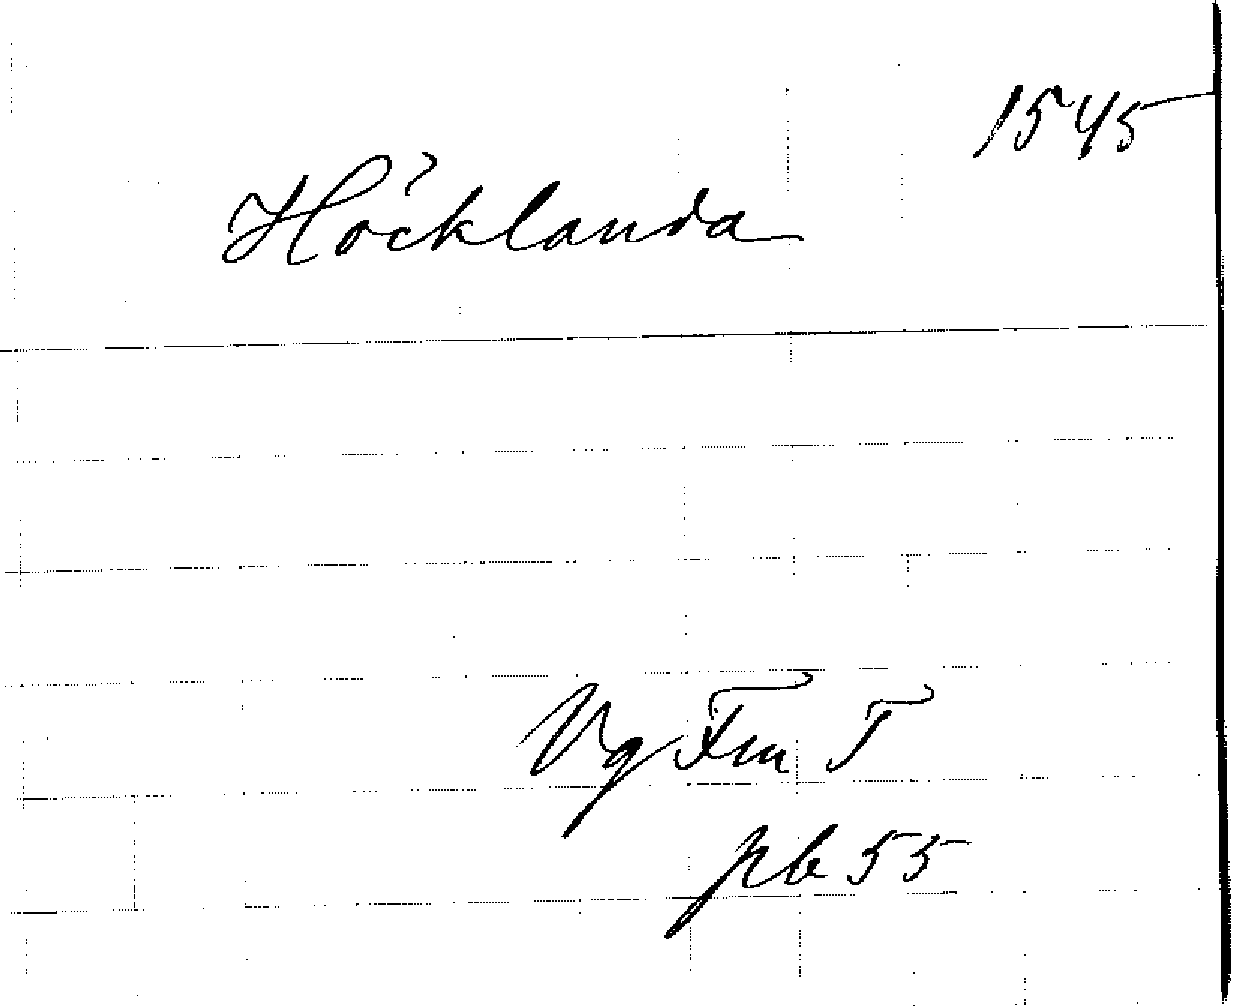 1545
Höcklanda
Vg Fm T
pb 55